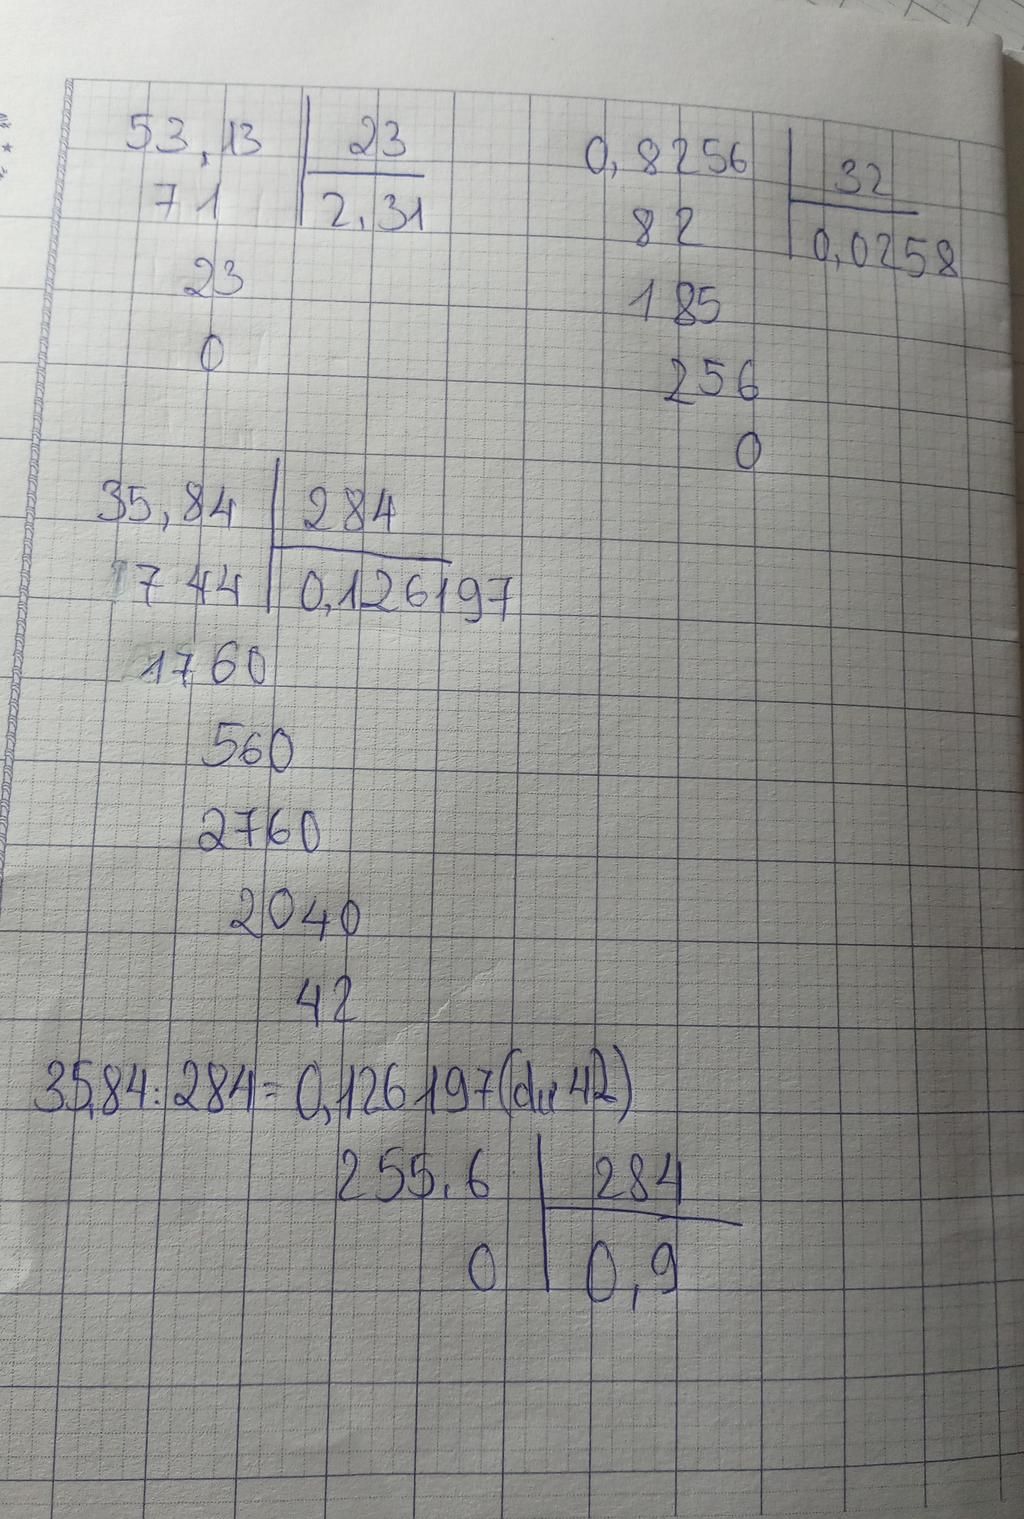 53,13 23
71 2,31
23
0
0,8256 32
82 0,0258
185
256
0
35,84 284
1744 0,126197
1760
560
2760
2040
42
35,84 : 284 = 0,126197 (dư 42)
255,6 284
0 0,9